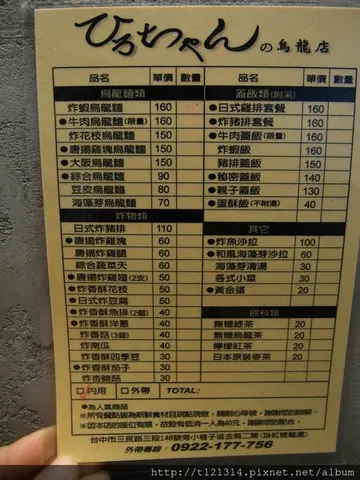 ひろちゃんの烏龍店
品名 單價 數量 品名 單價 數量
烏龍麵類
炸蝦烏龍麵 160
●牛肉烏龍麵(限量) 160
炸花枝烏龍麵 150
●唐揚雞塊烏龍麵 150
●大阪烏龍麵 150
●綜合烏龍麵 90
豆皮烏龍麵 80
海藻芽烏龍麵 70
炸物類
日式炸豬排 110
●唐揚炸雞塊 60
唐揚炸雞腿 60
綜合蔬菜天 60
●唐揚炸雞翅(2支) 50
●炸香酥花枝 50
●日式炸豆腐 50
●炸香酥魚排(2個) 40
●炸香酥洋蔥 40
炸香菇(3個) 40
炸南瓜 40
炸香酥四季豆 30
●炸香酥茄子 30
炸杏鮑菇 30
蓋飯類(附湯)
●日式雞排套餐 160
●炸豬排套餐 160
●牛肉蓋飯(限量) 160
炸蝦飯 160
豬排蓋飯 150
●秘密蓋飯 140
●親子蓋飯 130
●蛋酥飯(不附湯) 40
其它
●炸魚沙拉 100
●和風海藻芽沙拉 60
海藻芽清湯 30
各式小菜 30
●黃金蛋 20
飲料類
無糖綠茶 20
無糖烏龍茶 20
檸檬紅茶 20
日本原裝麥茶 20
□內用 □外帶 TOTAL:
●為人氣商品
※所有餐點皆為新鮮食材且現點現做，請耐心等候，謝謝您的諒解。
※因本店的座位有限，故低消一人為40元，請體諒我們的安排。
台中市三民路三段148號旁小巷子進去第二間
外帶專線：0922-177-756
http://t121314.pixnet.net/album